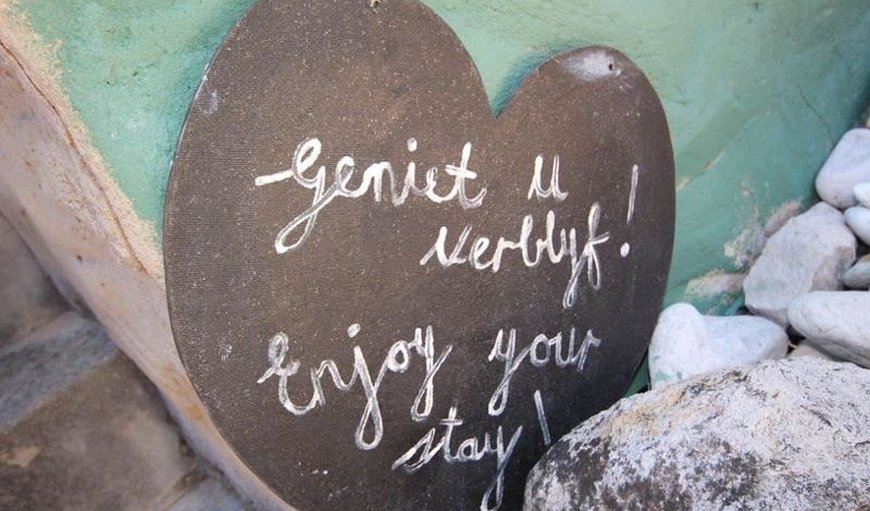 Geniet u
verblyf!
Enjoy your
stay!